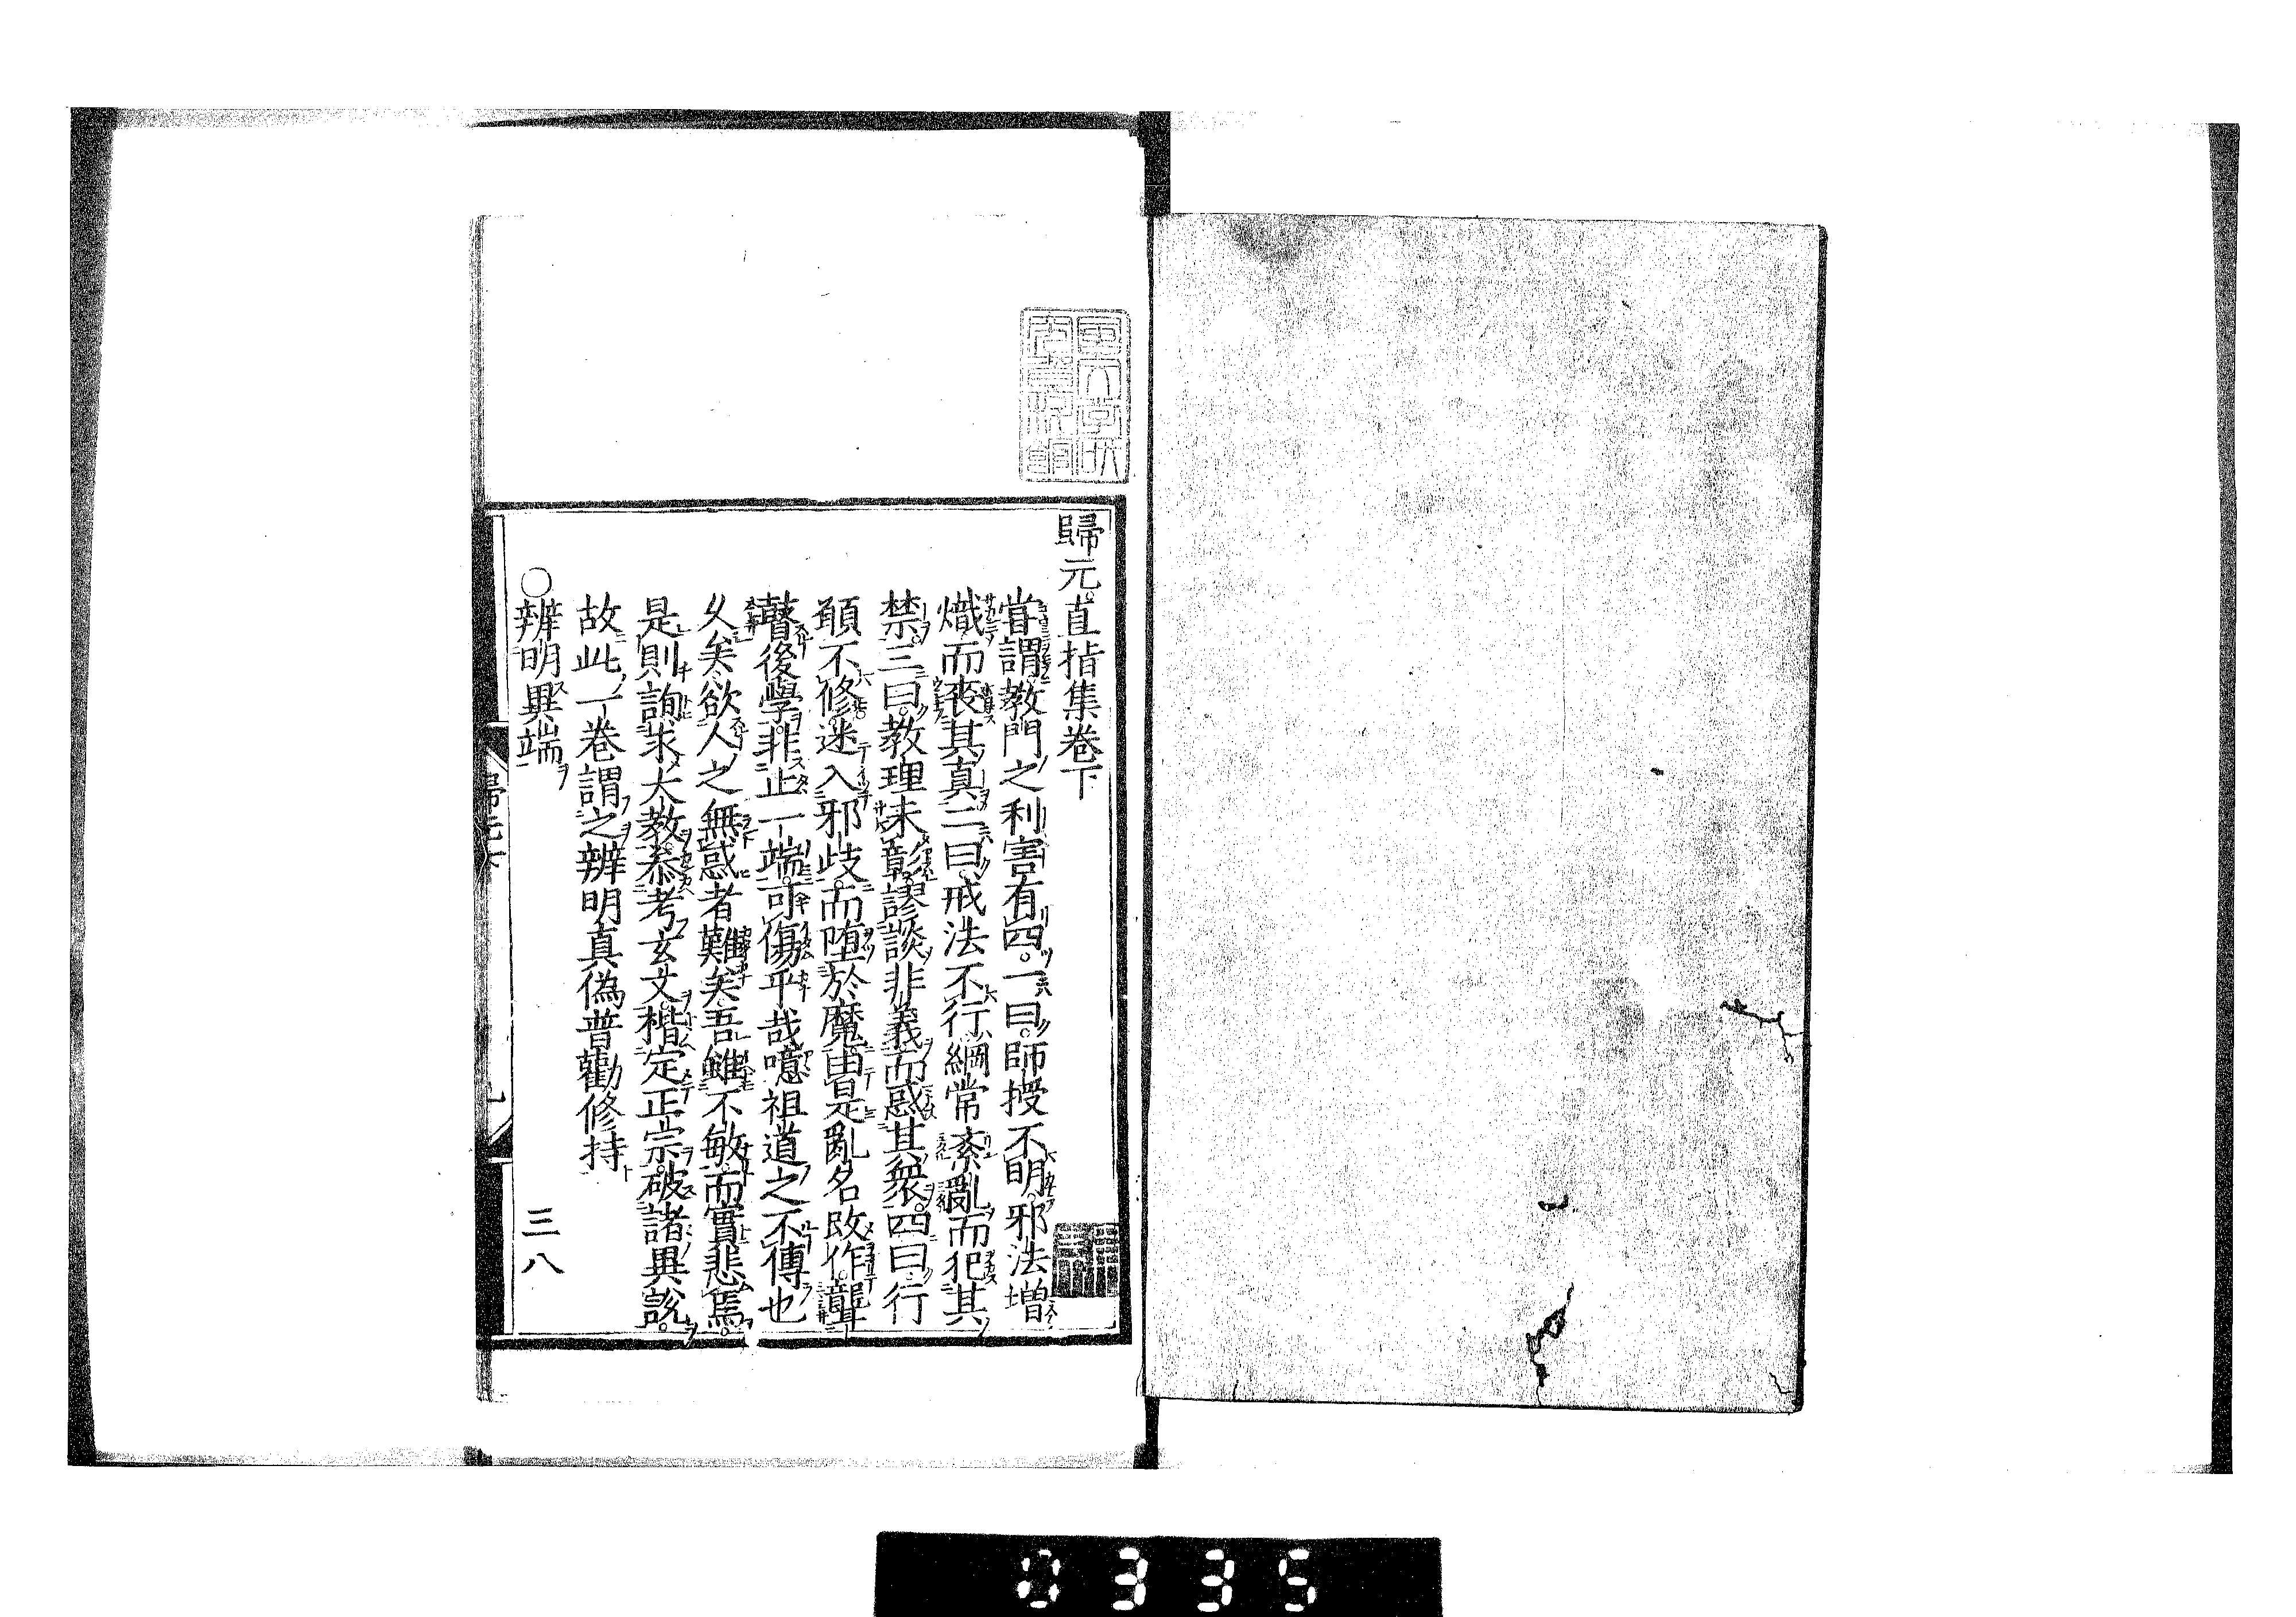 歸元直指集卷下
甞謂教門之利害有四。一曰。師授不明。邪法增
熾而喪其真。二曰。戒法不行。綱常紊亂而犯其
禁。三曰。教理未彰。謬談非義而惑其衆。四曰。行
願不修。迷入邪歧。而墮於魔。由是亂名改作。聾
瞽後學。非止一端。可傷乎哉。噫祖道之不傳也
久矣。欲人之無惑者難矣。吾雖不敏。而實悲焉。
是則詢求大教。叅考玄文。楷定正宗。破諸異說。
故此一卷謂之辨明真偽普勸修持
〇辨明異端
三八
歸元下
0335